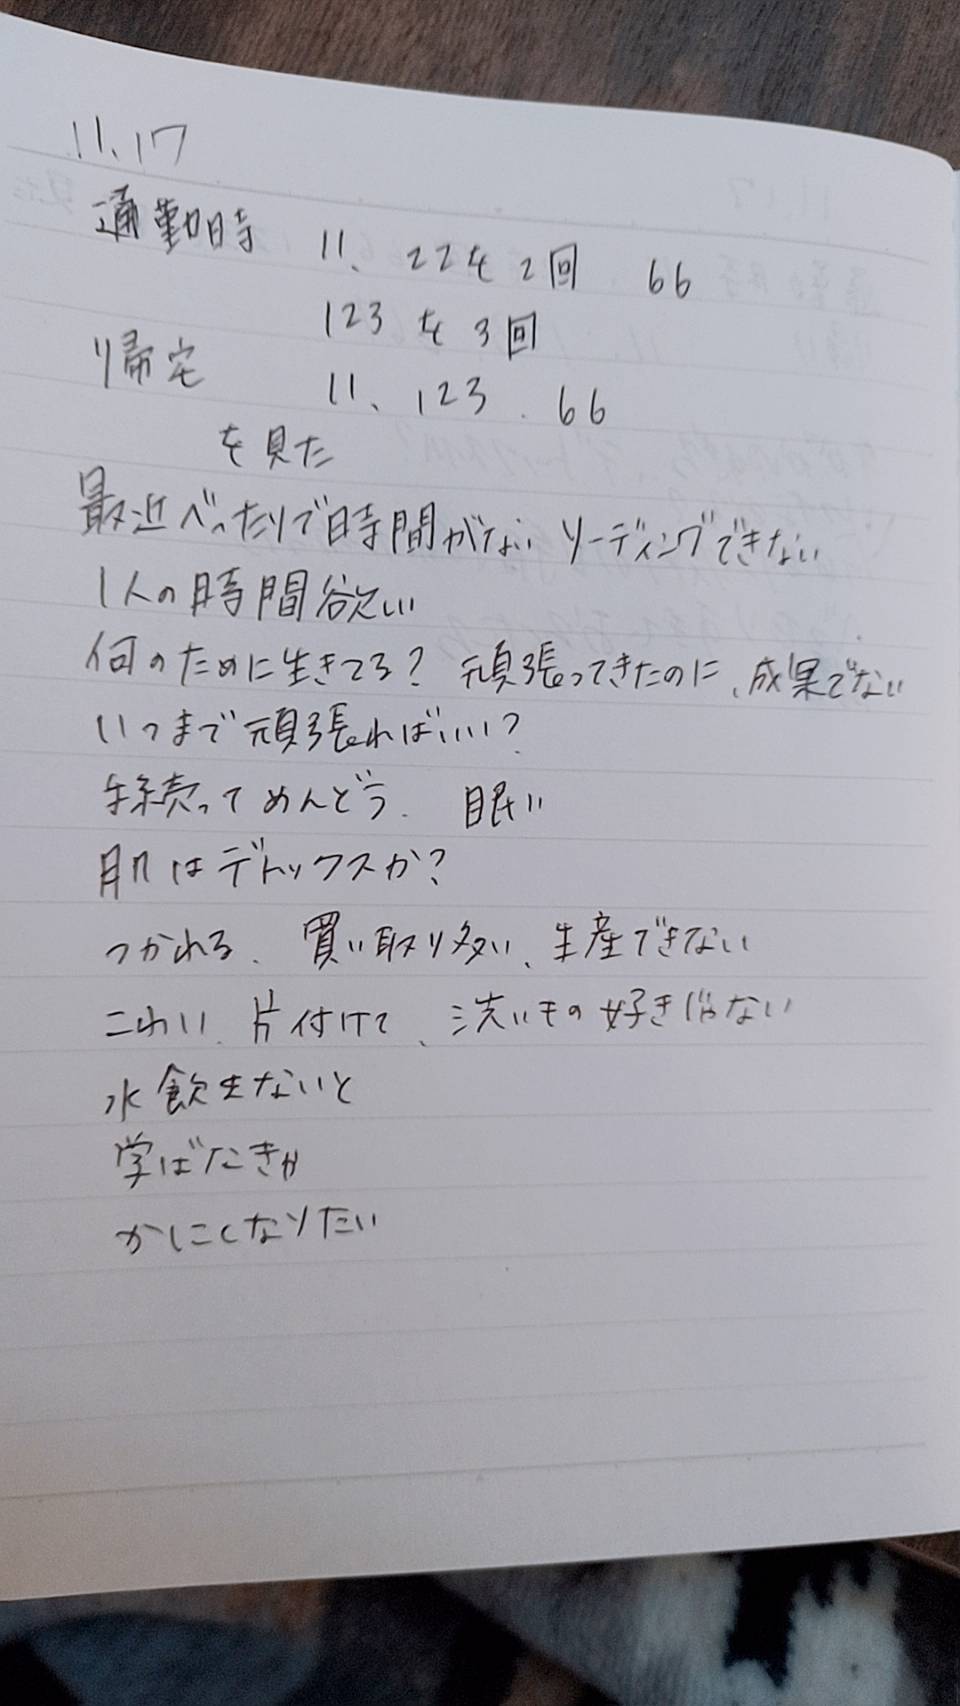 11.17
通勤時 11、22を2回 66
123を3回
帰宅 11、123.66
を見た
最近べったりで時間がない リーディングできない
1人の時間欲しい
何のために生きてる? 頑張ってきたのに、成果でない
いつまで頑張ればいい?
手続ってめんどう. 眠い
肌はデトックスか?
つかれる、買い取り多い、生産できない
こわい、片付けて、洗いもの好きじゃない
水飲まないと
学ばたきか
かしこくなりたい